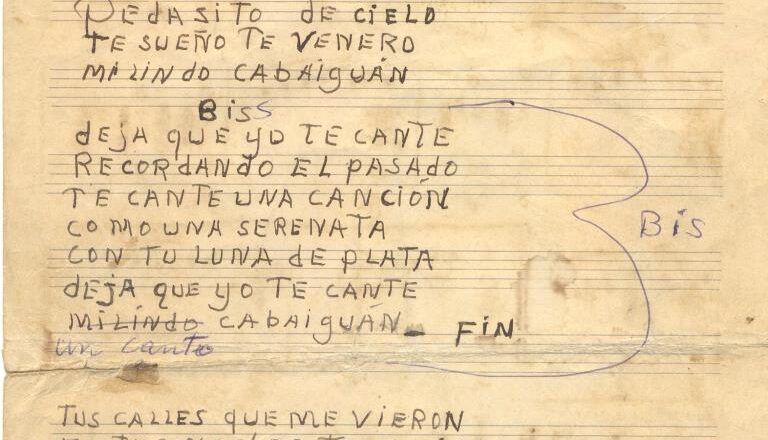 PEdASITO dE CiELO
TE SUEÑO TE VENERO
Mi LINDO CABAiGUÁN
BiSS
dEjA QUE YO TE CANTE
RECORdANDO EL PASAdO
TE CANTE UNA CANCiÓN
COMO UNA SERENATA
BiS
CON TU LUNA dE PLATA
dEJA QUE YO TE CANTE
Mi LINDO CABAiGUÁN_ FiN
un canto
TUS CALLES QUE ME ViERON